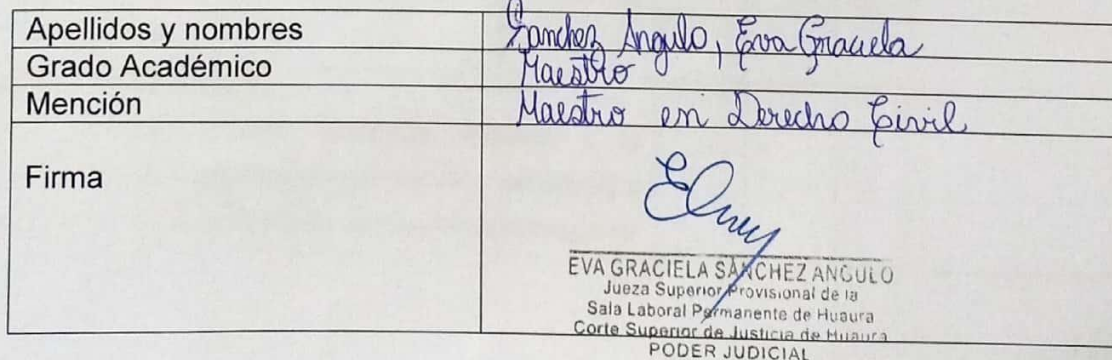 Apellidos y nombres Sanchez Angulo, Eva Graciela
Grado Académico Maestro
Mención Maestro en Derecho Civil
Firma
EVA GRACIELA SÁNCHEZ ANGULO
Jueza Superior Provisional de la
Sala Laboral Permanente de Huaura
Corte Superior de Justicia de Huaura
PODER JUDICIAL